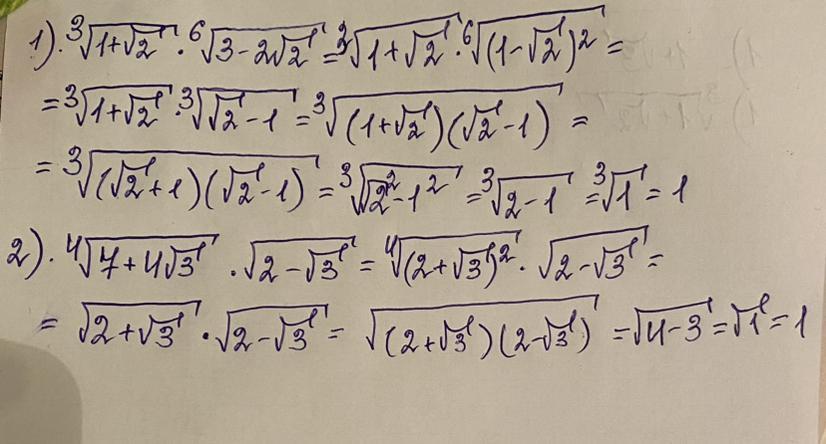 1). ∛(1+√2) · ⁶√(3-2√2) = ∛(1+√2) · ⁶√((1-√2)²) =
= ∛(1+√2) · ∛(√2-1) = ∛((1+√2)(√2-1)) =
= ∛((√2+1)(√2-1)) = ∛(√2²-1²) = ∛(2-1) = ∛1 = 1
2). ⁴√(7+4√3) · √(2-√3) = ⁴√((2+√3)²) · √(2-√3) =
= √(2+√3) · √(2-√3) = √((2+√3)(2-√3)) = √(4-3) = √1 = 1